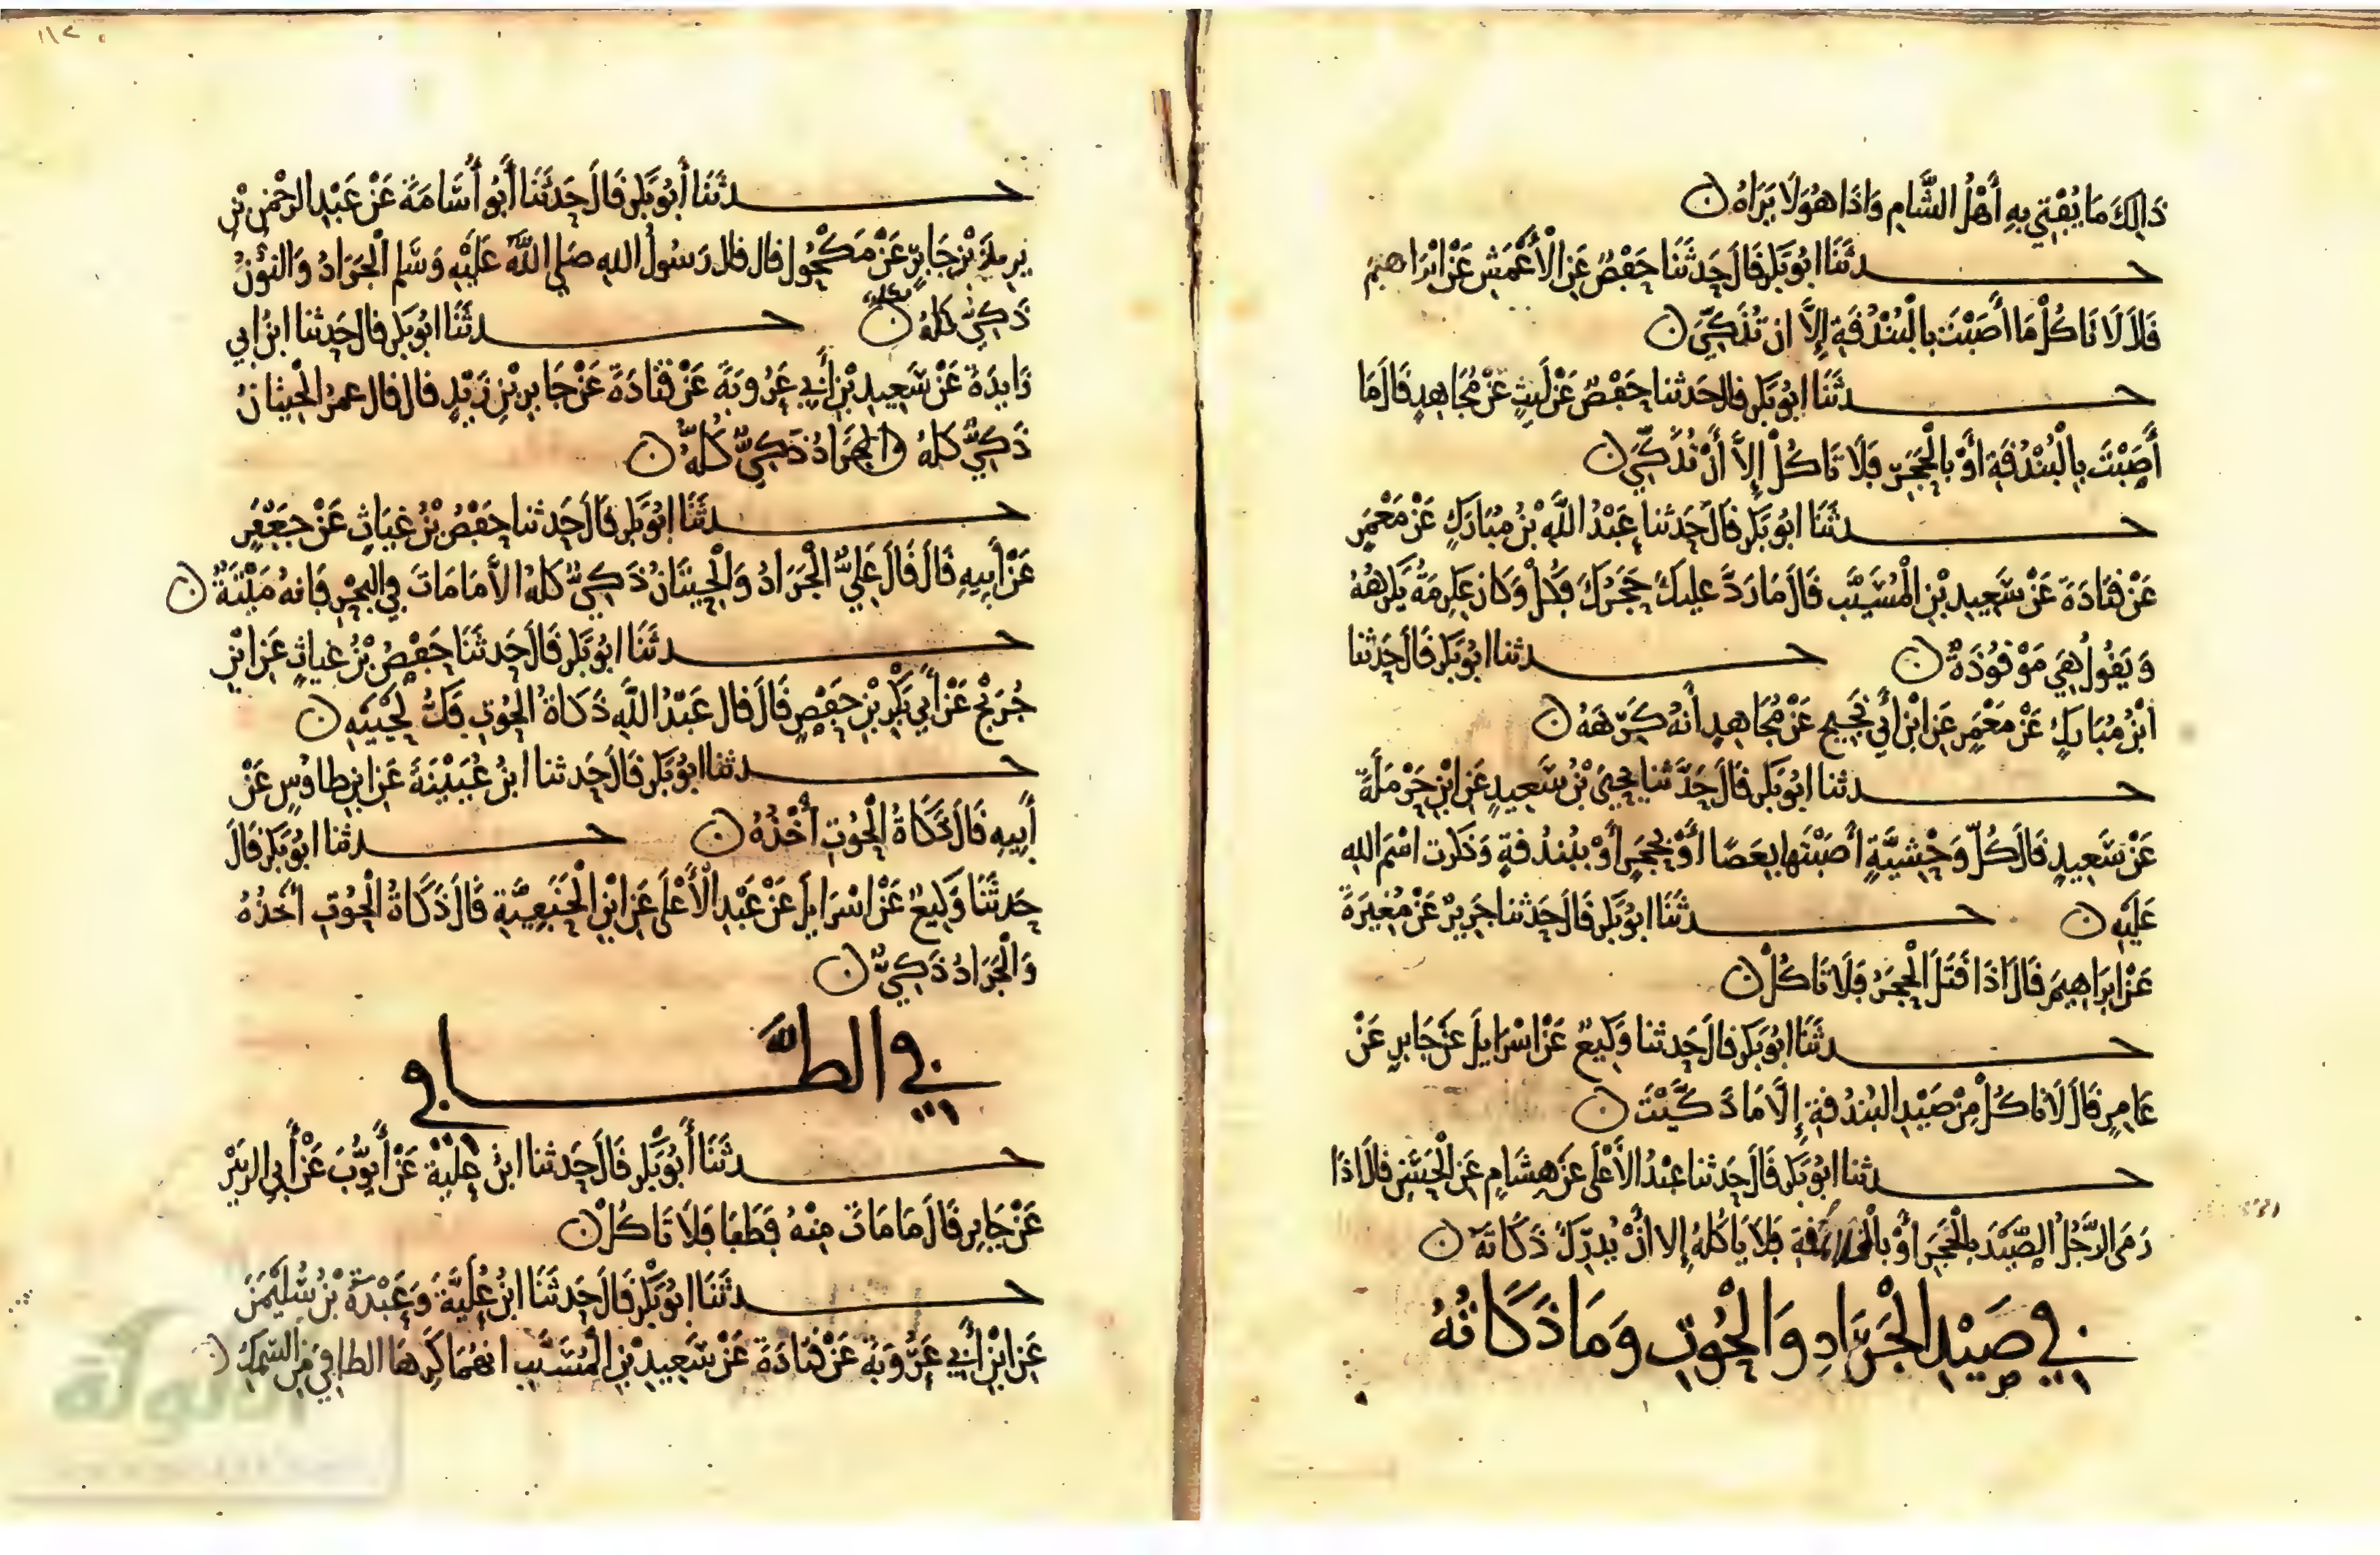 ذَالِكَ مَا يُفْتِي بِهِ أَهْلُ الشَّامِ وَاذَا هُوَ لَا يَرَاهُ ن
حدثَنَا ابُو بَكر قَالَ حَدثَنَا حَفْصٌ عَنِ الْأَعْمَشِ عَنْ ابْرَاهِيمَ
قَالَ لَا تَاكُلْ مَا أَصَبْتَ بِالْبُنْدُقَةِ إِلَّا ان تُذَكِّيَ ن
حدثَنَا ابُو بَكر قال حَدثنا حَفْصٌ عَنْ لَيْثٍ عَنْ مُجَاهِدٍ قَالَ مَا
أَصَبْتَ بِالْبُنْدُقَةِ اوْ بِالْحَجَرِ فَلَا تَاكُلْ إِلاَّ أَنْ تُذَكِّيَ ن
حدثَنَا ابُو بَكر قَالَ حَدثنا عَبْدُ اللَّهِ بْنُ مُبَارَكٍ عَنْ مَعْمَرٍ
عَنْ قَتَادَةَ عَنْ سَعِيدِ بْنِ الْمُسَيَّبِ قَالَ مَا رَدَّ عَلَيْكَ حَجَرُكَ فَكُلْ وَكَانَ عِكْرِمَةُ يَكْرَهُهُ
وَيَقُولُ هِيَ مَوْقُوذَةٌ ن حدثنا ابُو بَكر قَالَ حَدثنا
ابْنُ مُبَارَكٍ عَنْ مَعْمَرٍ عَنِ ابْنِ أَبِي نَجِيحٍ عَنْ مُجَاهِدٍ أَنهُ كَرِهَهُ ن
حدثنا ابُو بَكر قَالَ حَدَّثنا يَحْيَى بْنُ سَعِيدٍ عَنِ ابْنِ حَرْمَلَةَ
عَنْ سَعِيدٍ قَالَ كُلّ وَحْشِيَّةٍ أَصَبْتَها بِعَصًا أَوْ بِحَجَرٍ أَوْ بِبُنْدُقةٍ وَذَكرت اسْمَ اللهِ
عَلَيْهِ ن حدثَنَا ابُو بَكر قَالَ حَدثنا جَرِيرٌ عَنْ مُغِيرَةَ
عَنْ ابرَاهِيمَ قَالَ اذَا قَتَلَ الْحَجَرُ فَلَا تَاكُلْ ن
حدثَنَا ابُو بَكر قال حَدثنا وَكِيعٌ عَنْ اسْرَايلَ عَنْ جَابِرٍ عَنْ
عَامِرٍ قَالَ لَا تَاكُلْ مِنْ صَيْدِ البُنْدُقةِ إِلَّا مَا ذَكَّيْتَ ن
حدثنا ابُو بَكر قَالَ حَدثنا عَبْدُ الأَعْلَى عَنْ هِشَامٍ عَنِ الْحَسَنِ قَالَ اذَا
رَمَى الرَّجُلُ الصَّيْدَ بِالْحَجَرِ أَوْ فَلَا يَاكُلْهُ إِلا أَنْ يُدرِكَ ذَكَاتَهُ ن
في صَيْدِ الْجَرَادِ وَالْحُوتِ وَمَا ذَكَاتُهُ
١١٢
حدثَنَا أَبُو بَكر قَالَ حَدثَنَا أَبُو أُسَامَةَ عَنْ عَبْدِ الرحْمنِ بْنِ
يزِيدَ بْنِ جَابِرٍ عَنْ مَكْحُولٍ قال قال رَسُولُ اللهِ صَلى اللَّهُ عَلَيْهِ وَسَلم الْجَرَادُ وَالنُّونُ
ذَكِيٌّ كُلهُ ن حدثَنَا ابُو بَكر قال حَدثنا ابنُ ابي
زَايِدَةَ عَنْ سَعِيدِ بْنِ أَبِي عَرُوبَةَ عَنْ قَتَادَةَ عَنْ جَابِرِ بْنِ زَيْدٍ قال قال عمرُ الْحِيتَانُ
ذَكِيٌّ كُلهُ والْجَرَادُ ذَكِيٌّ كُلُّهُ ن
حدثَنَا ابُو بَكر قَالَ حَدثنا حَفْصُ بْنُ غِيَاثٍ عَنْ جَعْفَرٍ
عَنْ أَبِيهِ قَالَ قَالَ عَلِيٌّ الْجَرَادُ وَالْحِيتَانُ ذَكِيٌّ كُلهُ الاَّ مَا مَاتَ فِي الْبَحْرِ فَانهُ مَيْتَةٌ ن
حدثَنَا ابُو بَكر قَالَ حَدثَنَا حَفْصُ بْنُ غِياثٍ عَنِ ابْنِ
جُرَيْجٍ عَنْ أَبِي بَكْرِ بْنِ حَفْصٍ قَالَ قال عَبْدُ اللَّهِ ذَكَاةُ الْحُوتِ فَكُّ لَحْيَيْهِ ن
حدثنا ابُو بَكر قَالَ حَدثنا ابنُ عُيَيْنَةَ عَنِ ابنِ طاوُسٍ عَنْ
أَبِيهِ قَالَ ذَكَاةُ الْحُوتِ أَخْذُهُ ن حدثنا ابُو بَكر قَالَ
حَدثَنَا وَكِيعٌ عَنْ اسْرَايلَ عَنْ عَبْدِ الْأَعْلَى عَنِ ابْنِ الْحَنَفِيَّةِ قَالَ ذَكَاةُ الْحُوتِ أَخْذُهُ
وَالْجَرَادُ ذَكِيٌّ ن
في الطَّافي
حدثَنَا أَبُو بَكر قَالَ حَدثنا ابنُ عُلَيَّةَ عَنْ أَيُّوبَ عَنْ أَبِي الزبَيْرِ
عَنْ جَابِرٍ قَالَ مَا مَاتَ مِنْهُ فَطَفَا فَلَا تَاكُلْ ن
حدثَنَا ابُو بَكر قَالَ حَدثَنَا ابنُ عُلَيَّةَ وَعَبْدَةُ بْنُ سُلَيْمَنَ
عَنِ ابْنِ أَبِي عَرُوبَةَ عَنْ قَتَادَةَ عَنْ سَعِيدِ بْنِ الْمُسَيَّبِ انهُمَا كَرِهَا الطافِيَ مِنَ السَّمَكِ ن